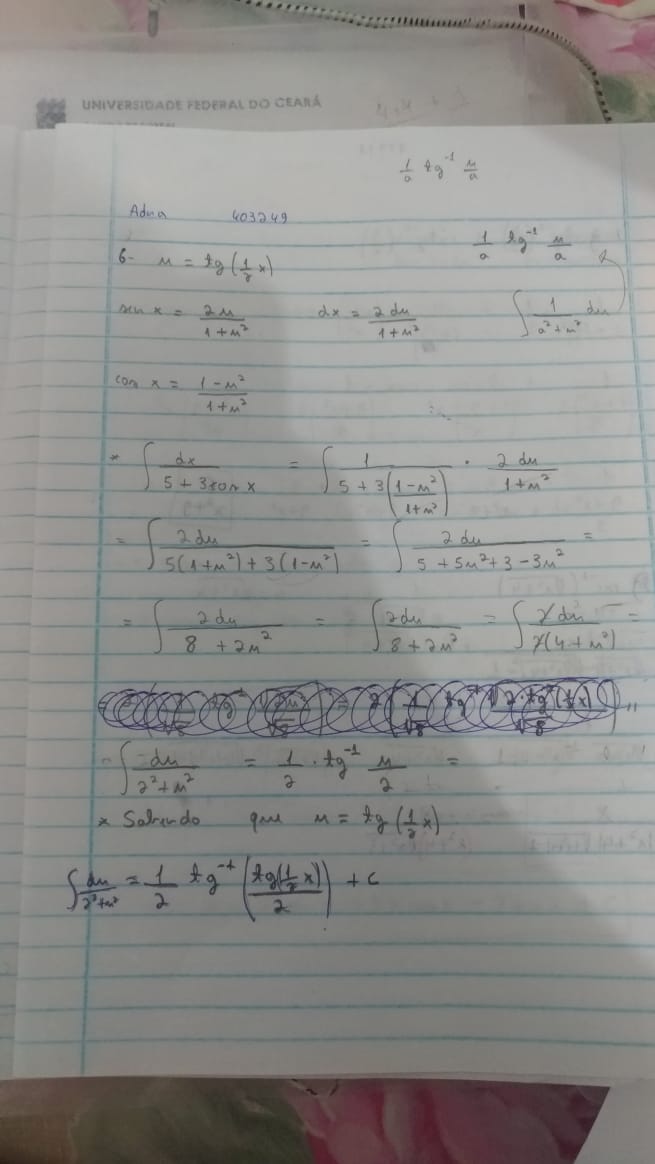 UNIVERSIDADE FEDERAL DO CEARÁ
1/a tg⁻¹ u/a
Adna 403249
1/a tg⁻¹ u/a
6- u = tg(1/2 x)
sen x = 2u/(1+u²) dx = 2du/(1+u²) ∫ 1/(a²+u²) du
cos x = (1-u²)/(1+u²)
* ∫ dx/(5+3cos x) = ∫ 1/(5+3((1-u²)/(1+u²))) · 2du/(1+u²)
= ∫ 2du/(5(1+u²)+3(1-u²)) = ∫ 2du/(5+5u²+3-3u²) =
= ∫ 2du/(8+2u²) = ∫ 2du/(8+2u²) = ∫ 2du/(2(4+u²)) =
= ∫ du/(2²+u²) = 1/2 · tg⁻¹ u/2 =
* Sabendo que u = tg(1/2 x)
∫ du/(2²+u²) = 1/2 tg⁻¹ (tg(1/2 x)/2) + c